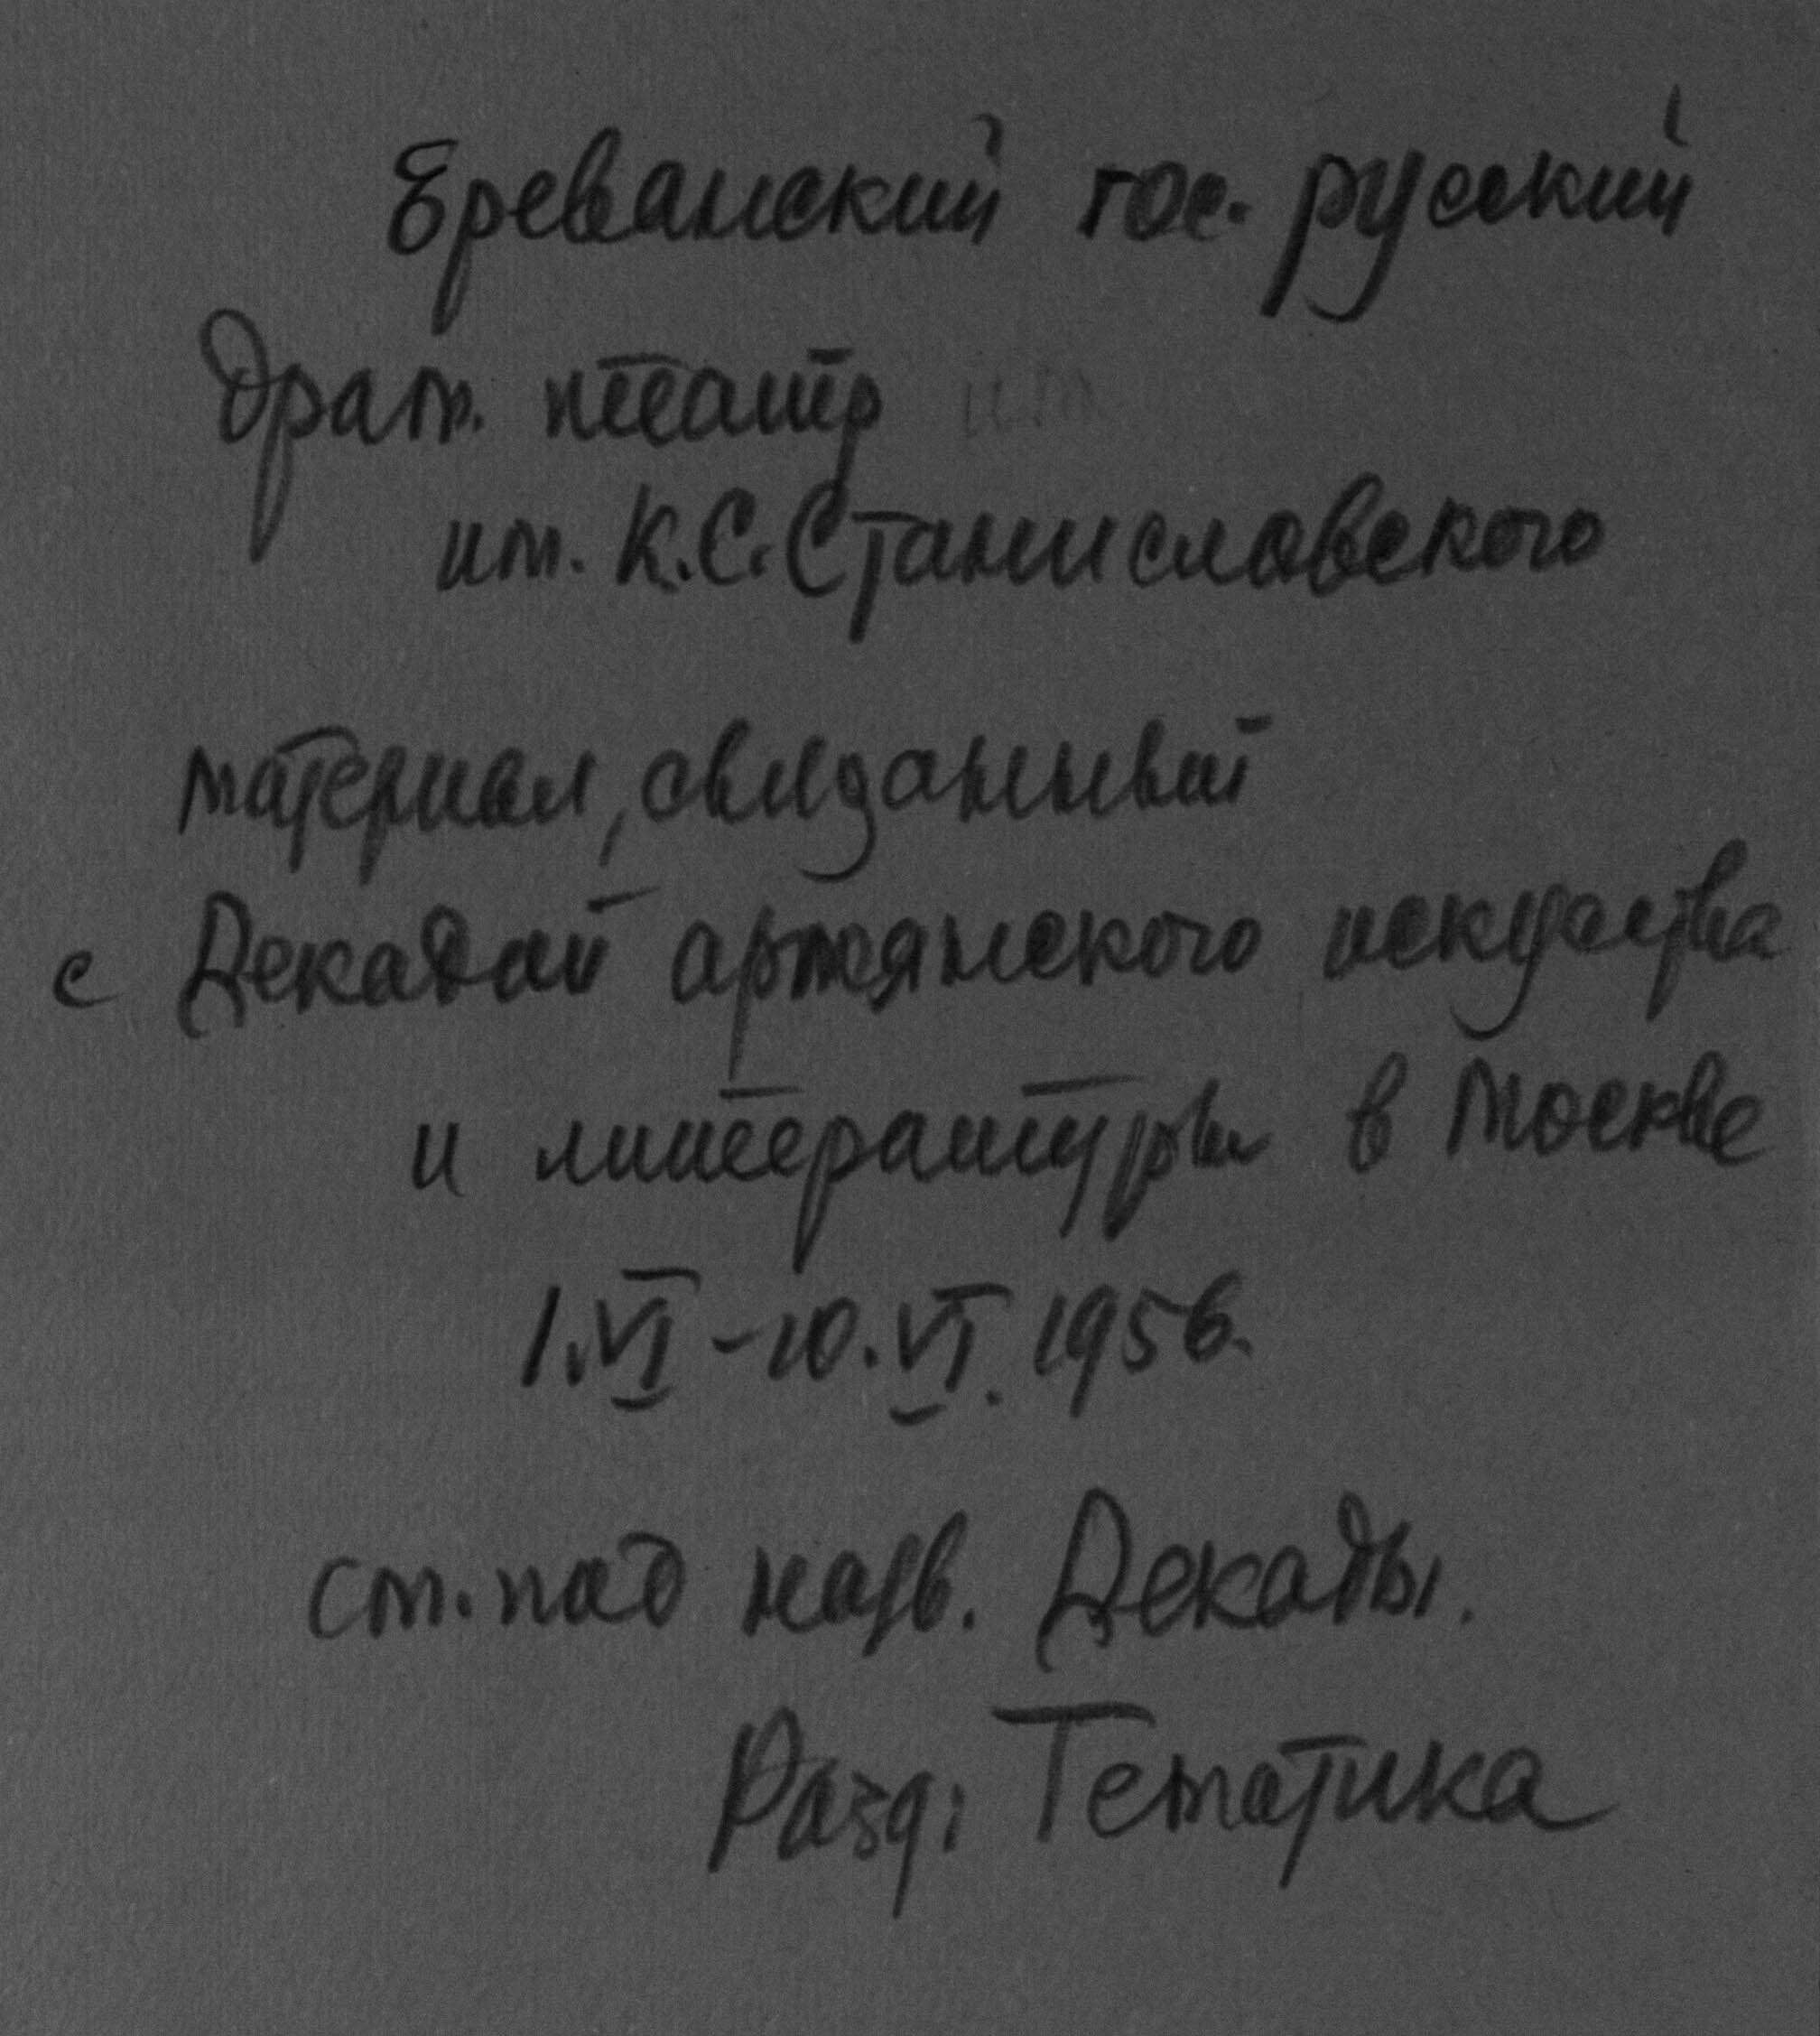 Ереванский гос. русский
драм. театр им
им. К.С. Станиславского
материал, связанный
с Декадой армянского искусства
и литературы в Москве
1.VI – 10.VI. 1956.
см. под назв. Декады.
Разд: Тематика